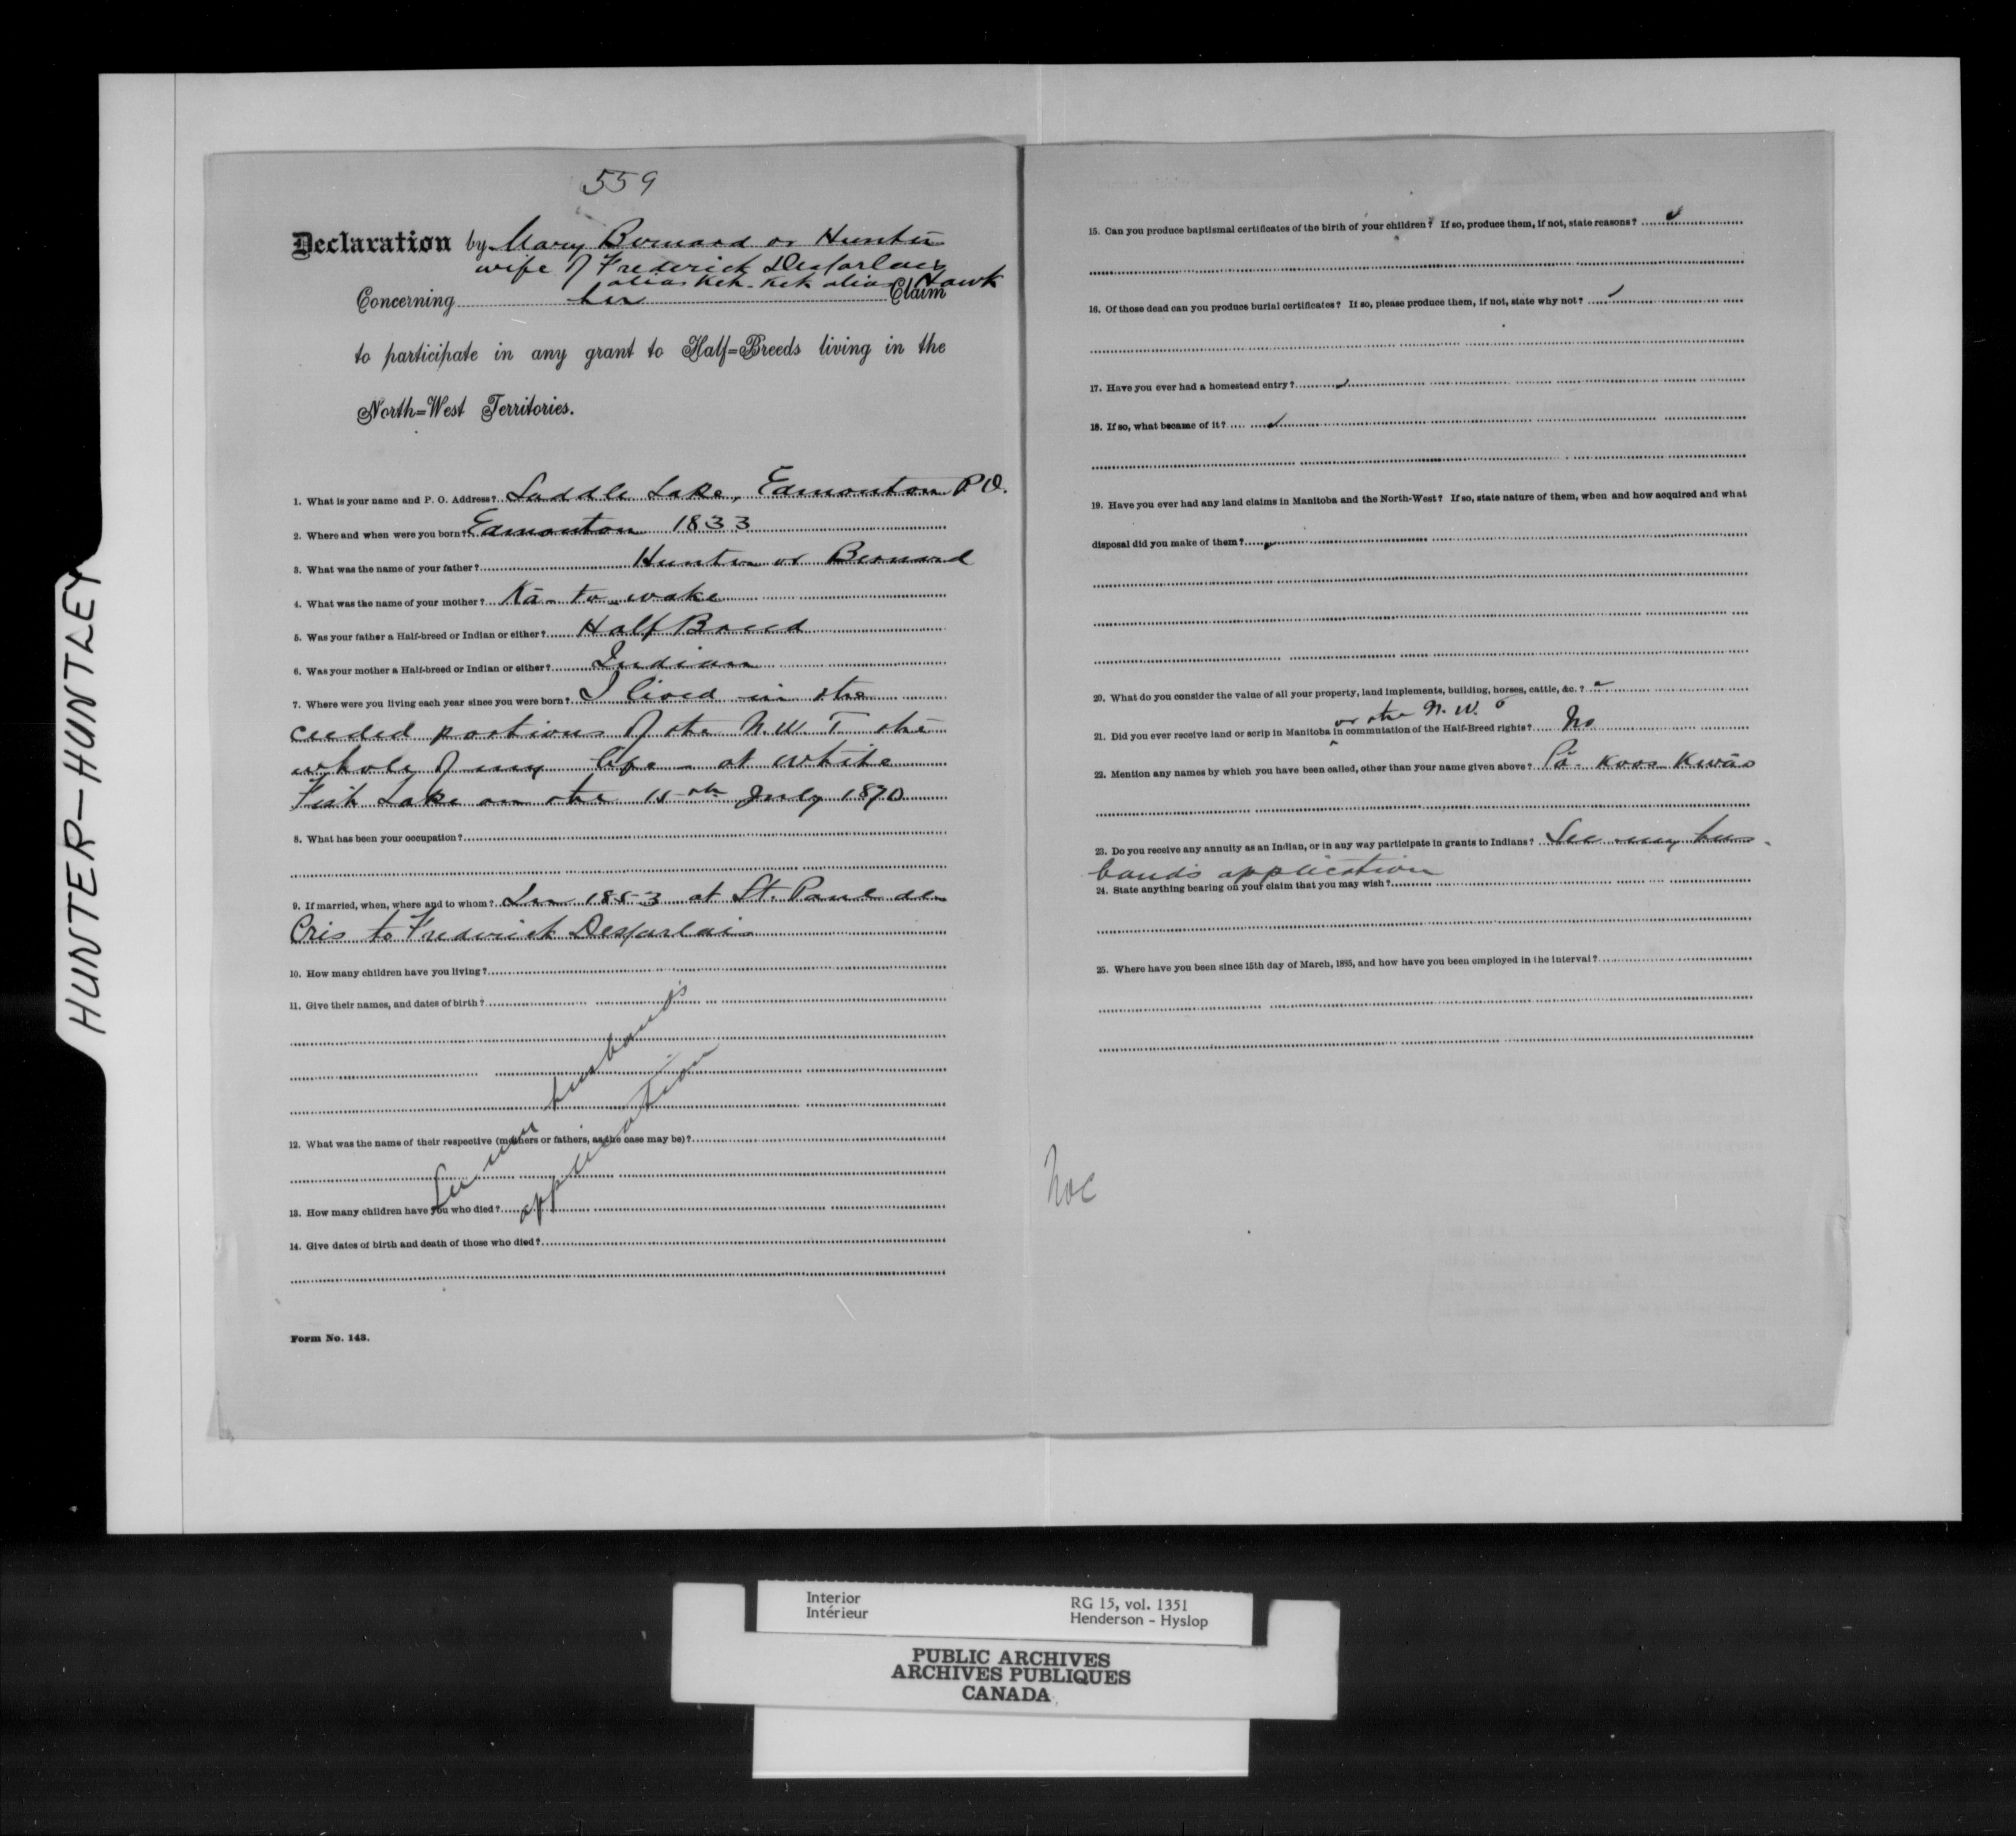 HUNTER-HUNTLEY
559
Declaration by Mary Bernard or Hunter
wife of Frederick Desjarlais
alias Keh-Kek alias Hawk
Concerning her Claim
to participate in any grant to Half=Breeds living in the
North=West Territories.
1. What is your name and P. O. Address? Saddle Lake, Edmonton P.O.
2. Where and when were you born? Edmonton 1833
3. What was the name of your father? Hunter or Bernard
4. What was the name of your mother? Kā-to-wake
5. Was your father a Half-breed or Indian or either? Half Breed
6. Was your mother a Half-breed or Indian or either? Indian
7. Where were you living each year since you were born? I lived in the
ceeded portions of the N.W.T. the
whole of my life - at White
Fish Lake on the 15th July 1870
8. What has been your occupation?
9. If married, when, where and to whom? In 1853 at St. Paul des
Cris to Frederick Desjarlais
10. How many children have you living?
11. Give their names, and dates of birth?
See my husband's
application
12. What was the name of their respective (mothers or fathers, as the case may be)?
13. How many children have you who died?
14. Give dates of birth and death of those who died?
Form No. 143.
15. Can you produce baptismal certificates of the birth of your children? If so, produce them, if not, state reasons?
16. Of those dead can you produce burial certificates? If so, please produce them, if not, state why not?
17. Have you ever had a homestead entry?
18. If so, what became of it?
19. Have you ever had any land claims in Manitoba and the North-West? If so, state nature of them, when and how acquired and what
disposal did you make of them?
20. What do you consider the value of all your property, land implements, building, horses, cattle, &c.?
or the N.W.
21. Did you ever receive land or scrip in Manitoba in commutation of the Half-Breed rights? No
22. Mention any names by which you have been called, other than your name given above? Pā-Koos-Kwāo
23. Do you receive any annuity as an Indian, or in any way participate in grants to Indians? See my hus-
band's application
24. State anything bearing on your claim that you may wish?
25. Where have you been since 15th day of March, 1885, and how have you been employed in the interval?
Interior
Intérieur
RG 15, vol. 1351
Henderson - Hyslop
PUBLIC ARCHIVES
ARCHIVES PUBLIQUES
CANADA